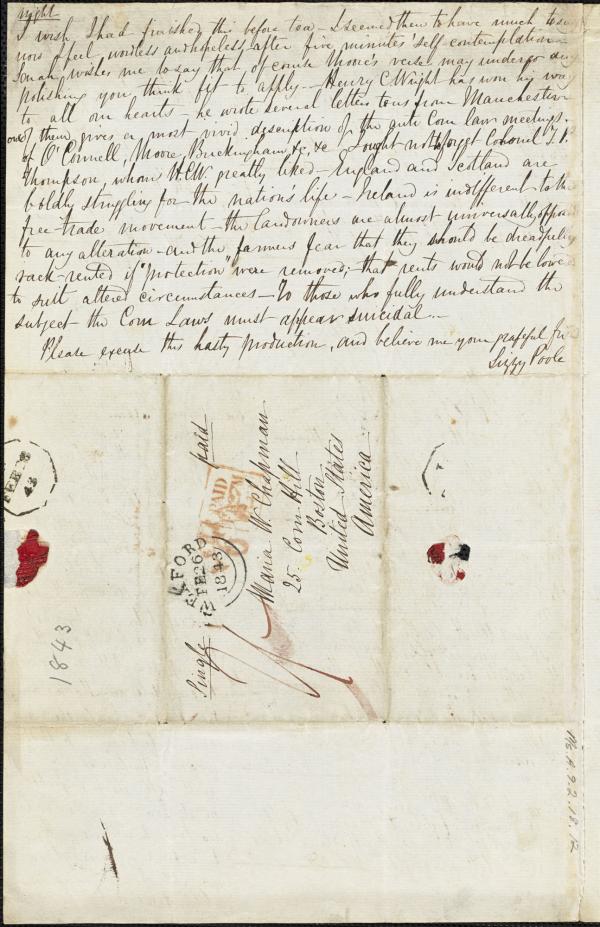 night
I wish I had finished this before tea – I seemed then to have much to say
now I feel wordless and hopeless after five minutes' self-contemplation –
wishes me to say that of course Moore's verses may undergo any
polishing you think fit to apply – Henry C Wright has won his way
to all our hearts – he wrote several letters to us from Manchester
one of them gives a most vivid description of the anti Corn law meetings –
of O'Connell, Moore, Buckingham, &c, &c I ought not to forget Colonel T. P.
Thompson, whom H.C.W. greatly liked – England and Scotland are
boldly struggling for the nation's life – Ireland is indifferent to the
free-trade movement – the landowners are almost universally opposed
to any alteration – and the farmers fear that they should be dreadfully
rack-rented if "protection" were removed; that rents would not be lowered
to suit altered circumstances – To those who fully understand the
subject the Corn Laws must appear suicidal –
Please excuse this hasty production, and believe me your grateful
Lizzy Poole
FEB 28
43
1843
Single
paid
PAID
FE 26
1843
Maria W. Chapman
25 Corn Hill
Boston
United States
America
Ms. A. 9. 2. 18. 12